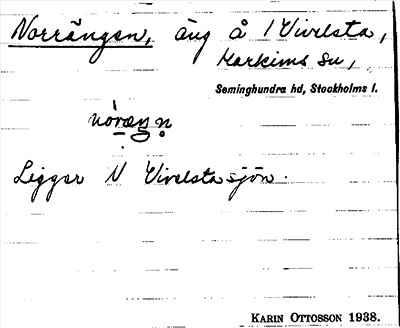 Norrängen, äng å /Vivelsta,
Markims sn,
Seminghundra hd, Stockholms l.
Ligger N Vivelstasjön.
KARIN OTTOSSON 1938.